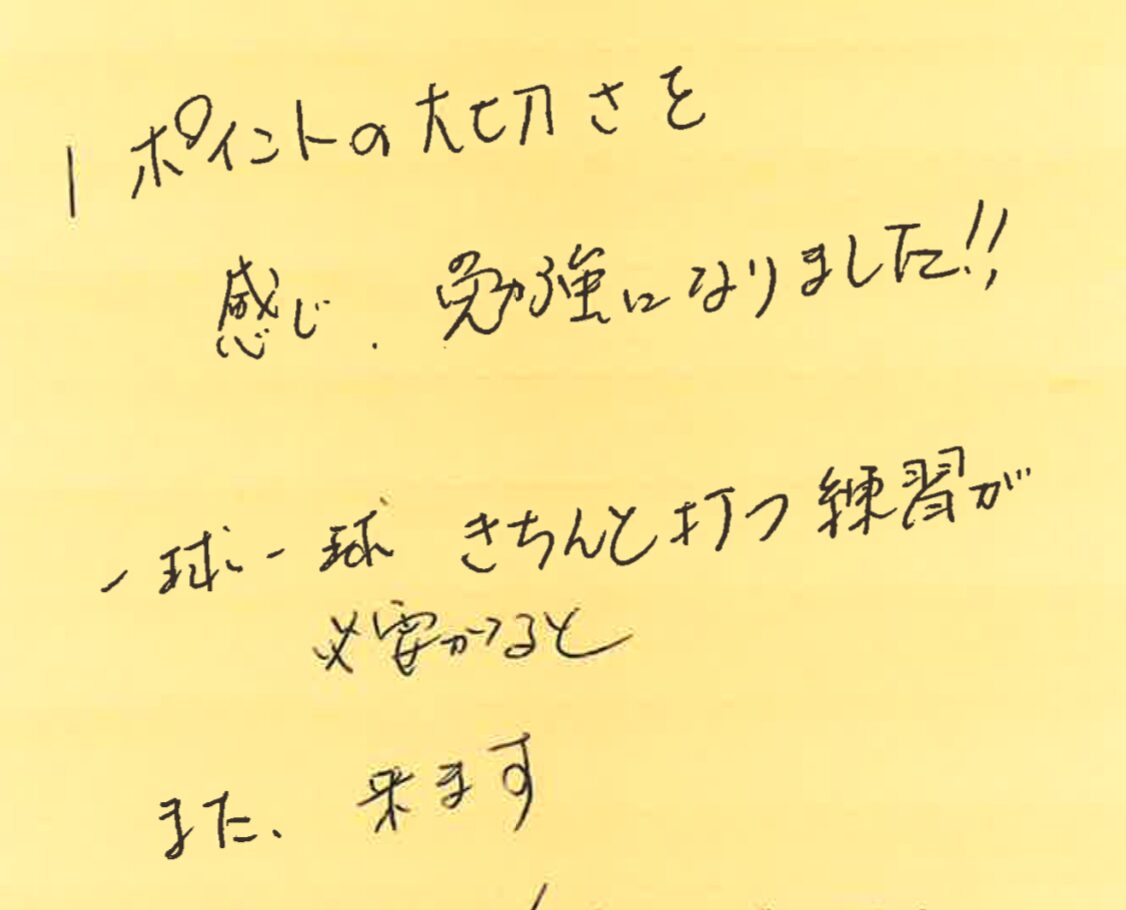 1ポイントの大切さを
感じ、勉強になりました!!
一球一球 きちんと打つ練習が
必要かつると
また、来ます